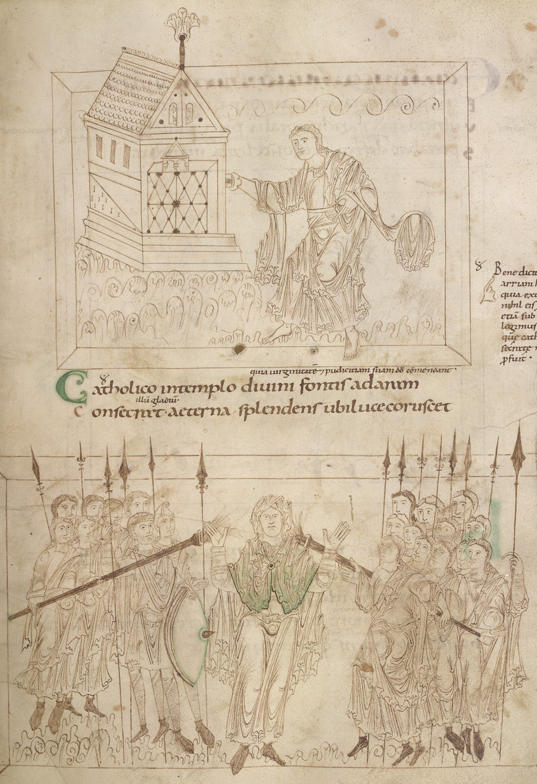 quia uirginitate & pudicitiam suam dō comendant
Catholico intemplo diuini fontis adaram
illū gladiū
Consecrat aeterna splendens ubi luce coruscet
Bene dictu
nihil eis
etiā sub
legimus
que cath
pfuit